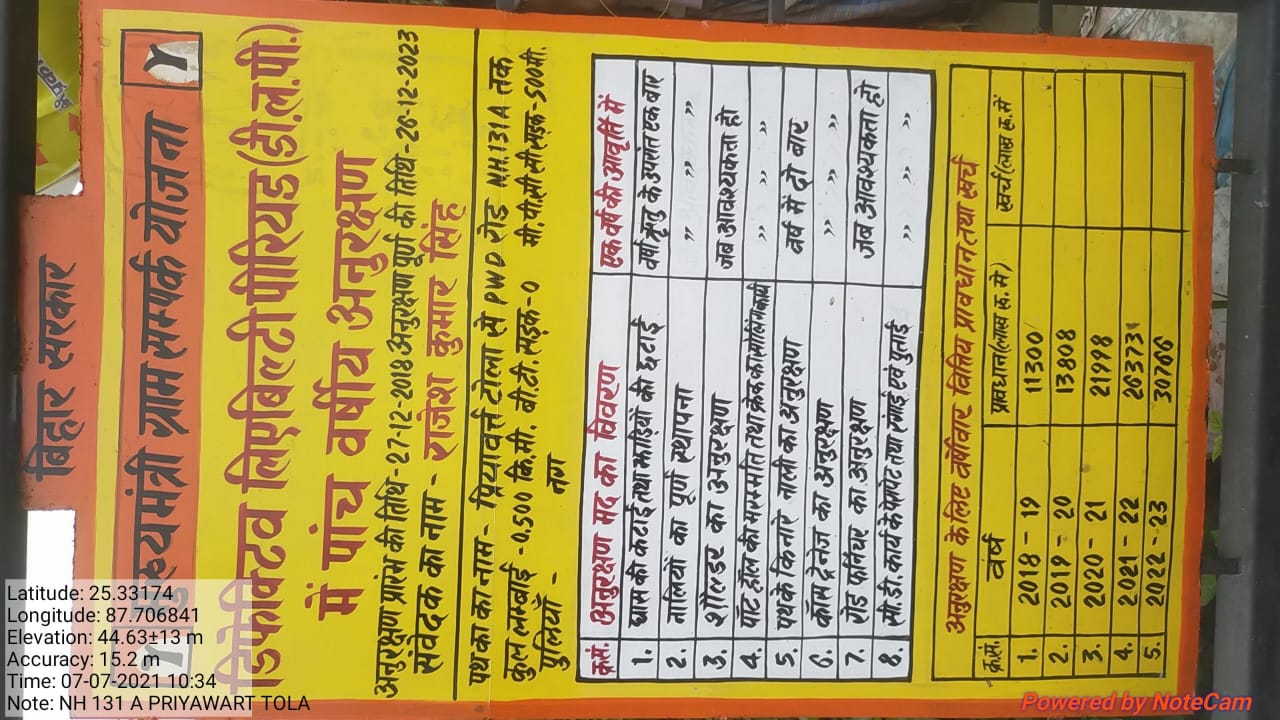 बिहार सरकार
Y मुख्यमंत्री ग्राम सम्पर्क योजना Y
डिफेक्टिव लिएबिल्टी पीरियड (डी.ल.पी.)
में पांच वर्षीय अनुरक्षण
अनुरक्षण प्रारंभ की तिथि-27-12-2018 अनुरक्षण पूर्ण की तिथि-26-12-2023
संवेदक का नाम - राजेश कुमार सिंह
पथ का नाम - प्रियावर्त्त टोला से PWD रोड NH.131A तक
कुल लम्बाई -0.500 कि.मी. बी.टी. सड़क-0 मी.पी.सी सी सड़क-500मी.
पुलियाँ - नग
क्र.सं. अनुरक्षण मद का विवरण एक वर्ष की आवृर्ति में
1. घास की कटाई तथा झाड़ियों की छटाई वर्षा ऋतु के उपरांत एक बार
2. नालियों का पूर्ण स्थापना " " "
3. शौल्डर का अनुरक्षण जब आवश्यकता हो
4. पॉट हॉल की मरम्मति तथा क्रेक का सीलिंग कार्य " " "
5. पथ के किनारे नाली का अनुरक्षण वर्ष में दो बार
6. क्रॉस ड्रेनेज का अनुरक्षण " " "
7. रोड फर्निचर का अनुरक्षण जब आवश्यकता हो
8. सी.डी. कार्य के पैरापेट तथा रंगाई एवं पुताई " " "
अनुरक्षण के लिए वर्षवार वित्तिय प्रावधान तथा खर्च
क्र.सं. वर्ष प्रावधान(लाख रु. में) खर्च(लाख रु. में)
1. 2018 - 19 11300
2. 2019 - 20 13808
3. 2020 - 21 21998
4. 2021 - 22 26373
5. 2022 - 23 30766
Latitude: 25.33174
Longitude: 87.706841
Elevation: 44.63±13 m
Accuracy: 15.2 m
Time: 07-07-2021 10:34
Note: NH 131 A PRIYAWART TOLA
Powered by NoteCam